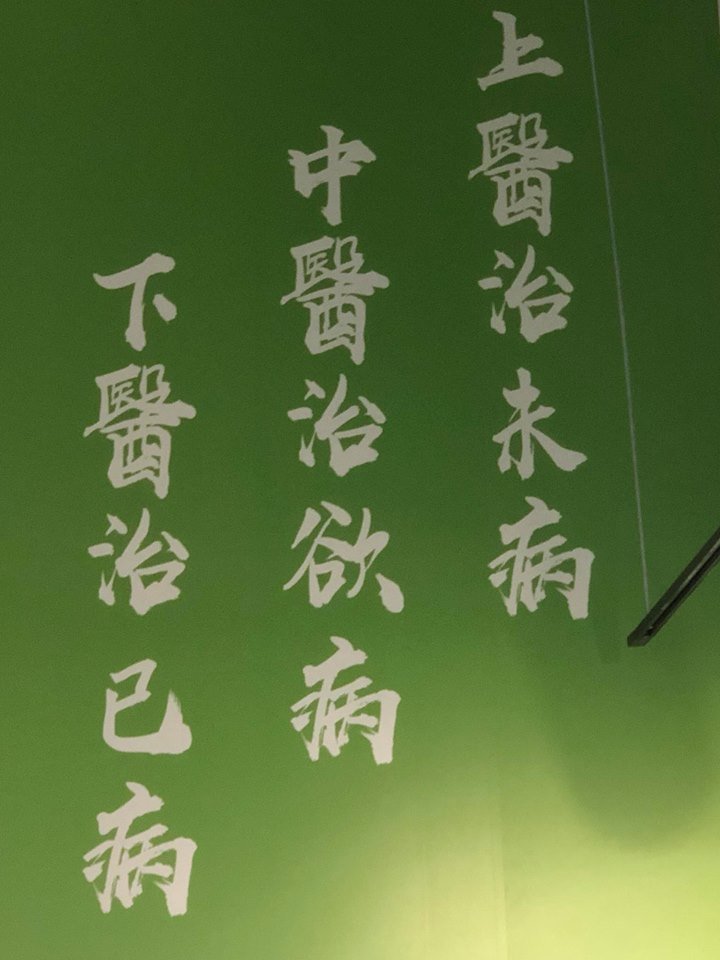 上醫治未病
中醫治欲病
下醫治已病